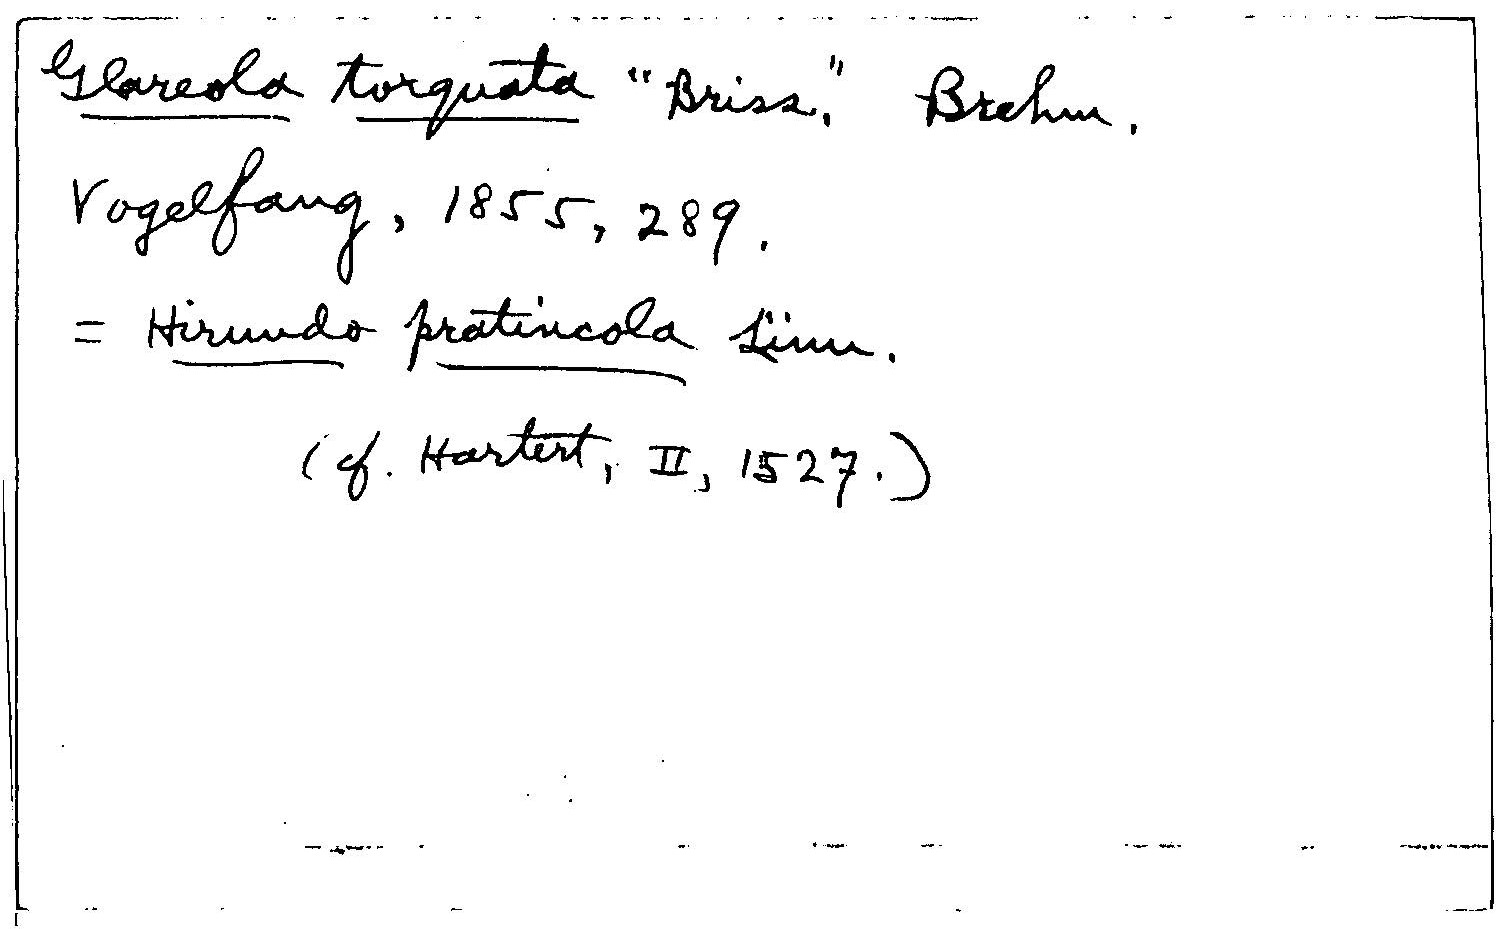 Glareola torquata "Briss." Brehm.
Vogelfang, 1855, 289.
= Hirundo pratincola Linn.
(cf. Hartert, II, 1527.)